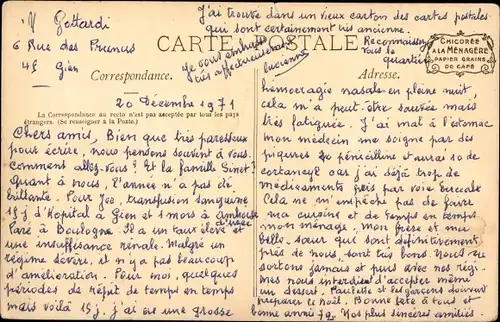 M Gottardi
6 Rue des Prunus
45 Gien
J'ai trouvé dans un vieux carton des cartes postales
qui sont certainement très ancienne.
Reconnaissez
vous le
quartier
CARTE POSTALE
CHICORÉE
A LA MÉNAGÈRE
PAPIER GRAINS
DE CAFÉ
Je vous embrasse
très affectueusement
Lucienne
Correspondance.
Adresse.
20 Décembre 1971
La Correspondance au recto n'est pas acceptée par tous les pays
étrangers. (Se renseigner à la Poste.)
Chers amis, Bien que très paresseux
pour écrire, nous pensons souvent à vous.
Comment allez-vous? Et la famille Sinet?
Quant à nous, l'année n'a pas été
brillante. Pour Joe, transfusion sanguine
15 j d'Hopital à Gien et 1 mois à Ambroise
Paré à Boulogne. Il a un taux élevé
d'urée
et
une insuffisance rénale. Malgré un
régime sévère, il n'y a pas beaucoup
d'amélioration. Pour moi, quelques
périodes de répit de temps en temps
mais voilà 15 j, j'ai eu une grosse
hémorragie nasale en pleine nuit,
cela m'a peut-être sauvée mais
très fatiguée. J'ai mal à l'estomac
mon médecin me soigne par des
piqures de pénicilline et aurai 10 de
cortancyl car j'ai déjà trop de
médicaments pris par voie buccale
Cela ne m'empêche pas de faire
ma cuisine et de temps en temps
mon ménage. Mon frère et ma
belle-sœur qui sont définitivement
près de nous, sont très bien. Nous ne
sortons jamais et puis avec nos régi-
mes nous interdisent d'accepter même
un dessert. Paulette et les garçons doivent
préparer le noël. Bonne fête à tous et
bonne année. Nos plus sincères amitiés